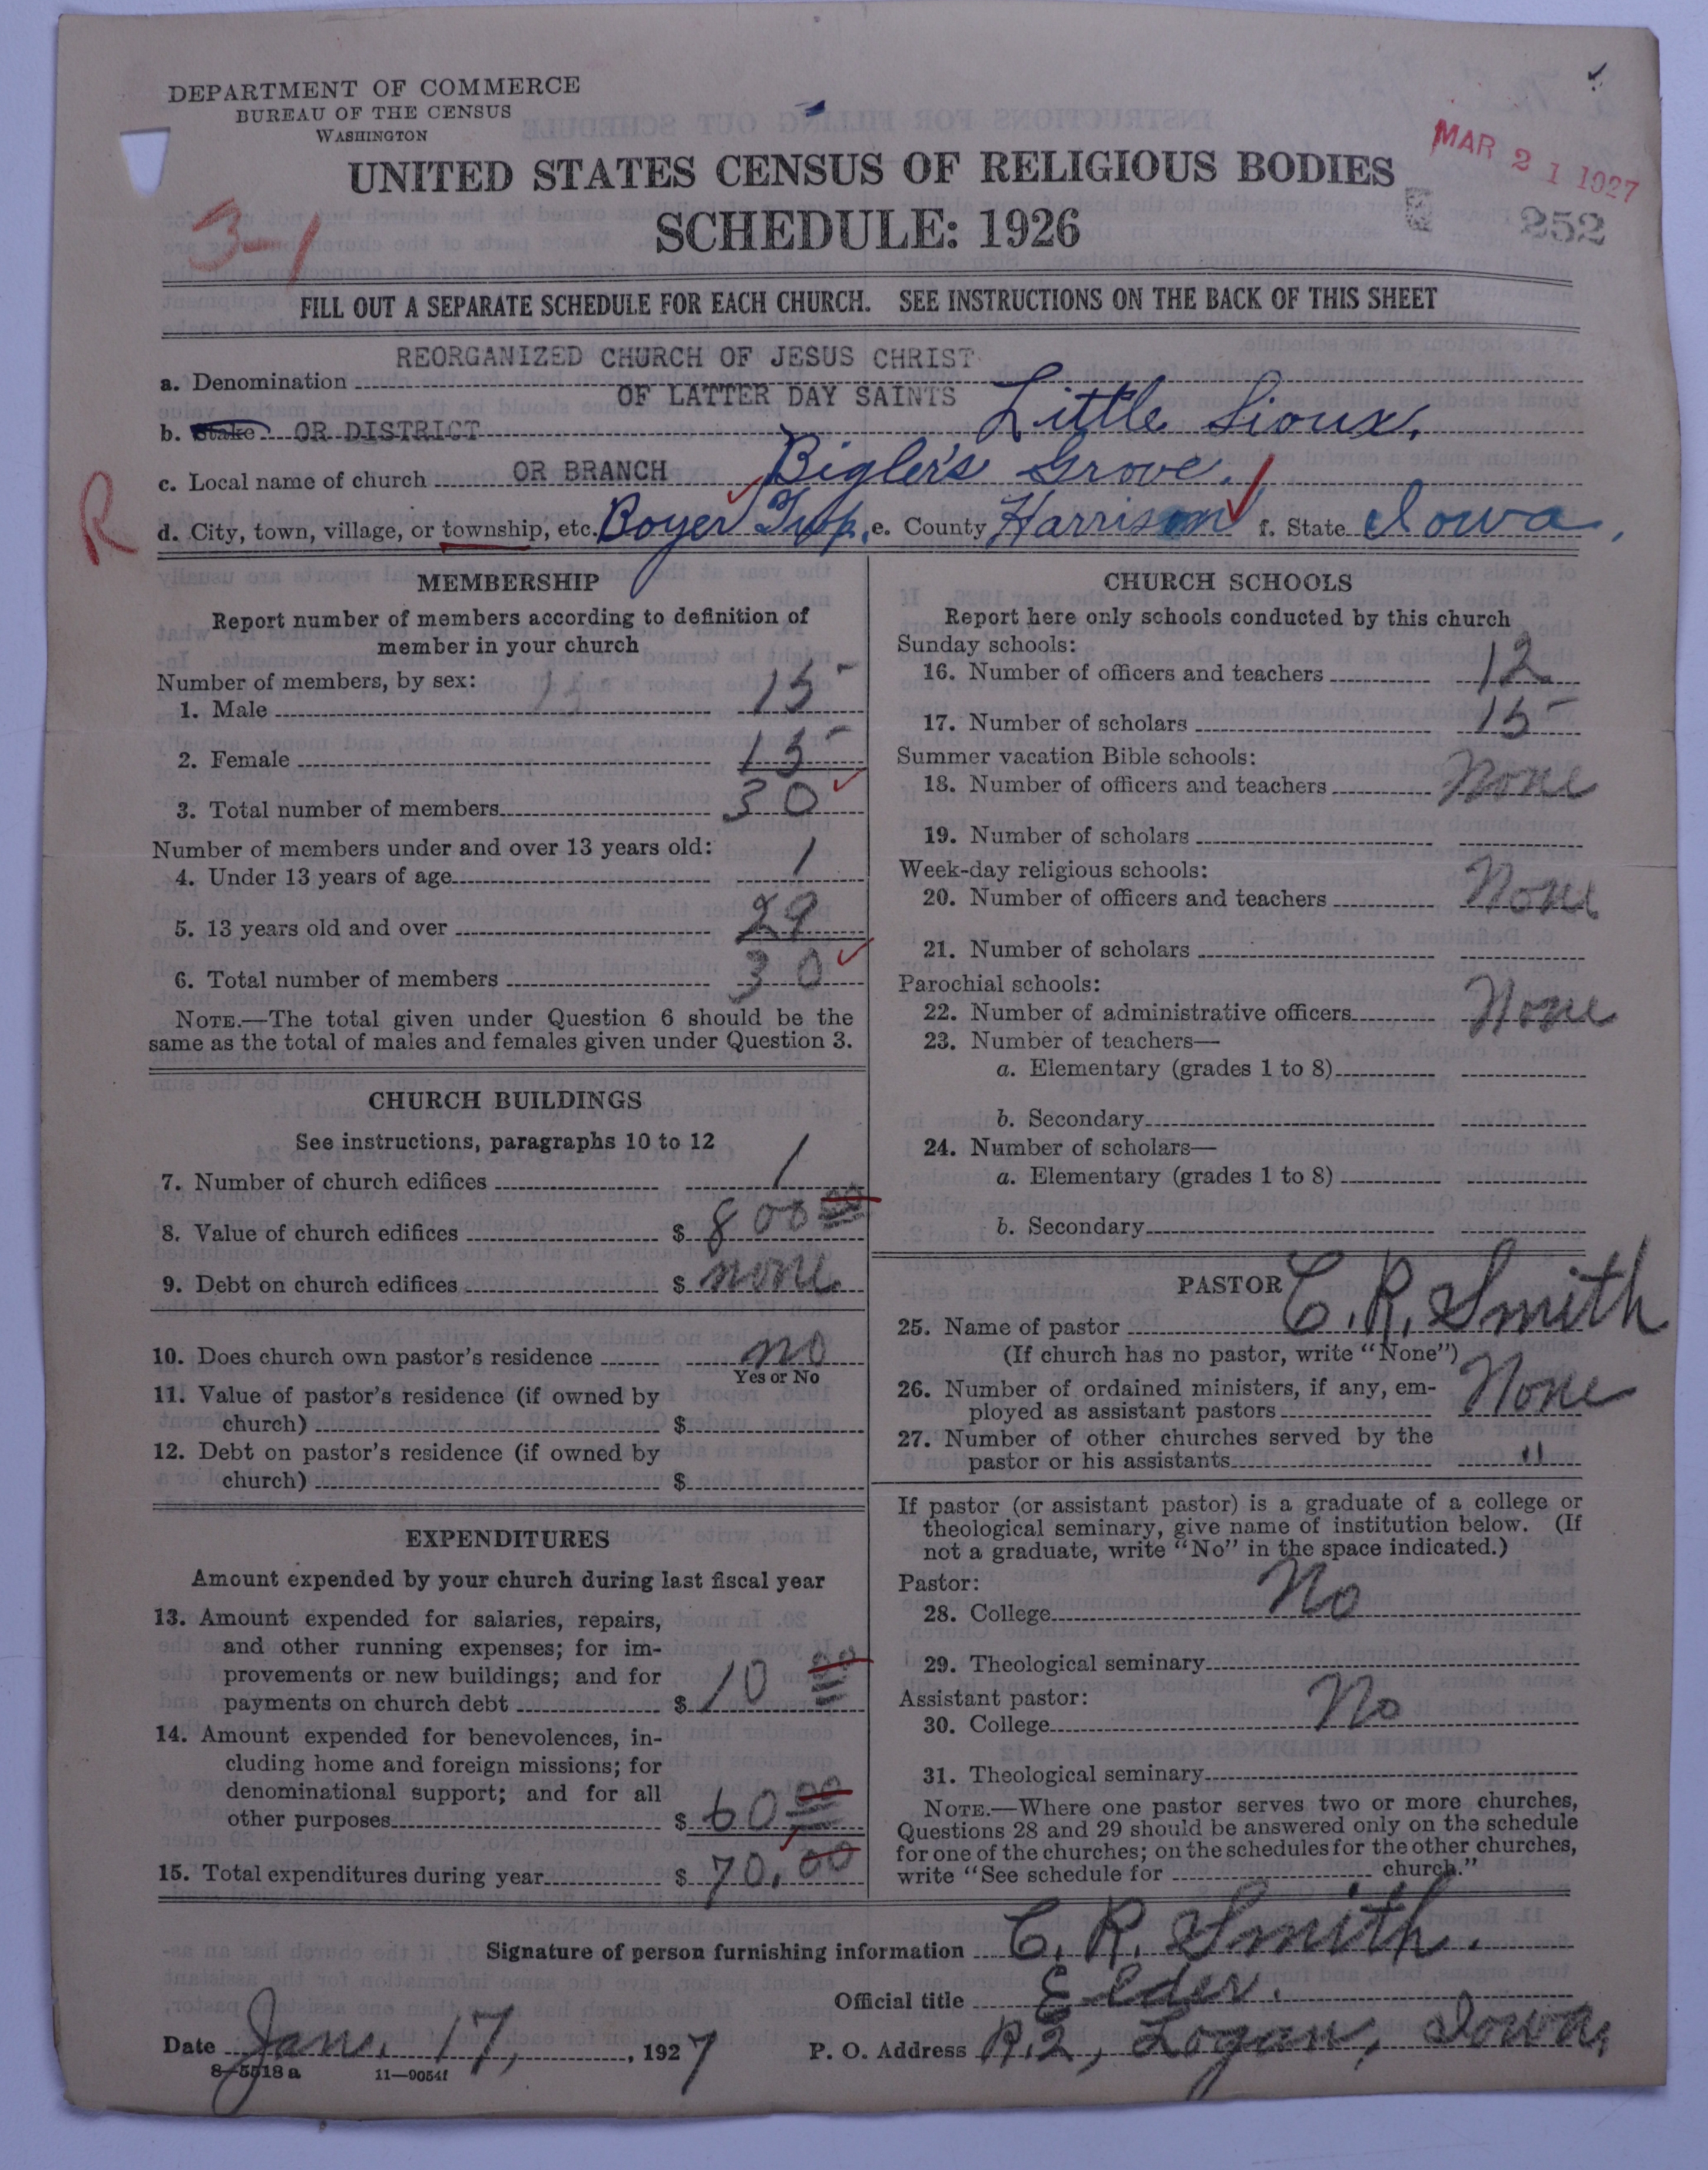 DEPARTMENT OF COMMERCE
BUREAU OF THE CENSUS
WASHINGTON
UNITED STATES CENSUS OF RELIGIOUS BODIES
MAR 21 1927
SCHEDULE: 1926
252
3-1
FILL OUT A SEPARATE SCHEDULE FOR EACH CHURCH. SEE INSTRUCTIONS ON THE BACK OF THIS SHEET
REORGANIZED CHURCH OF JESUS CHRIST
a. Denomination
OF LATTER DAY SAINTS
b. Stake OR DISTRICT Little Sioux.
c. Local name of church OR BRANCH Bigler's Grove.
R
d. City, town, village, or township, etc. Boyer Twp. e. County Harrison f. State Iowa.
MEMBERSHIP
Report number of members according to definition of
member in your church
Number of members, by sex:
1. Male 15
2. Female 15
3. Total number of members 30
Number of members under and over 13 years old:
4. Under 13 years of age 1
5. 13 years old and over 29
6. Total number of members 30
NOTE.—The total given under Question 6 should be the
same as the total of males and females given under Question 3.
CHURCH BUILDINGS
See instructions, paragraphs 10 to 12
7. Number of church edifices 1
8. Value of church edifices $ 800 00
9. Debt on church edifices $ none
10. Does church own pastor's residence no
Yes or No
11. Value of pastor's residence (if owned by
church) $
12. Debt on pastor's residence (if owned by
church) $
EXPENDITURES
Amount expended by your church during last fiscal year
13. Amount expended for salaries, repairs,
and other running expenses; for im-
provements or new buildings; and for
payments on church debt $ 10 00
14. Amount expended for benevolences, in-
cluding home and foreign missions; for
denominational support; and for all
other purposes $ 60 00
15. Total expenditures during year $ 70.00
CHURCH SCHOOLS
Report here only schools conducted by this church
Sunday schools:
16. Number of officers and teachers 12
17. Number of scholars 15
Summer vacation Bible schools:
18. Number of officers and teachers None
19. Number of scholars
Week-day religious schools:
20. Number of officers and teachers None
21. Number of scholars
Parochial schools:
22. Number of administrative officers None
23. Number of teachers—
a. Elementary (grades 1 to 8)
b. Secondary
24. Number of scholars—
a. Elementary (grades 1 to 8)
b. Secondary
PASTOR
25. Name of pastor C. R. Smith
(If church has no pastor, write "None")
26. Number of ordained ministers, if any, em-
ployed as assistant pastors None
27. Number of other churches served by the
pastor or his assistants "
If pastor (or assistant pastor) is a graduate of a college or
theological seminary, give name of institution below. (If
not a graduate, write "No" in the space indicated.)
Pastor:
28. College No
29. Theological seminary
Assistant pastor:
30. College No
31. Theological seminary
NOTE.—Where one pastor serves two or more churches,
Questions 28 and 29 should be answered only on the schedule
for one of the churches; on the schedules for the other churches,
write "See schedule for church."
Signature of person furnishing information C. R. Smith.
Official title Elder.
Date Jan. 17, 1927 P. O. Address R.2, Logan, Iowa,
8-5518a 11—9054f